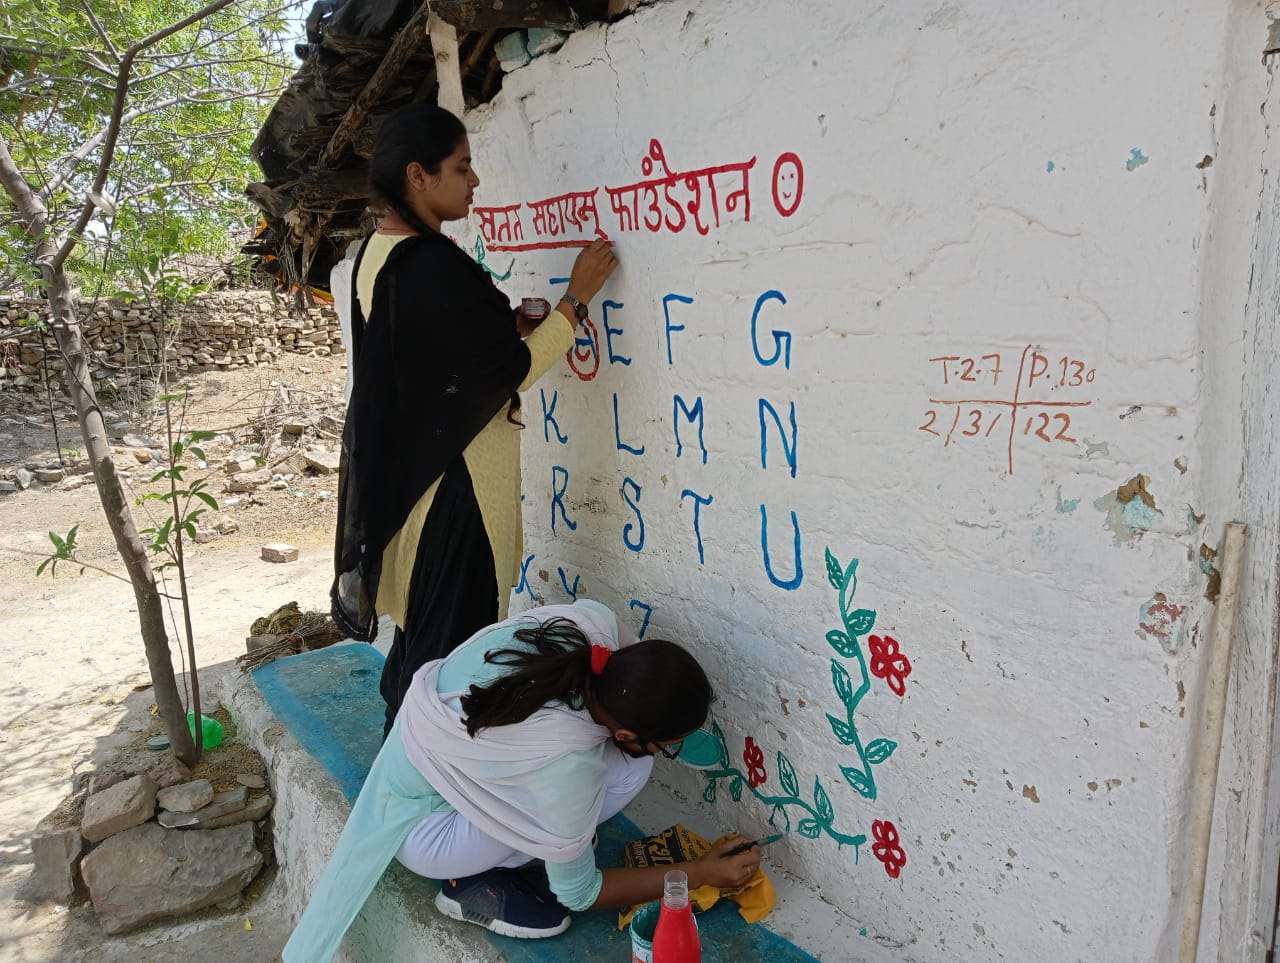 सतत सहायम् फाउंडेशन
E F G
K L M N
R S T U
X Y Z
T.2.7 P.130
2/31 122